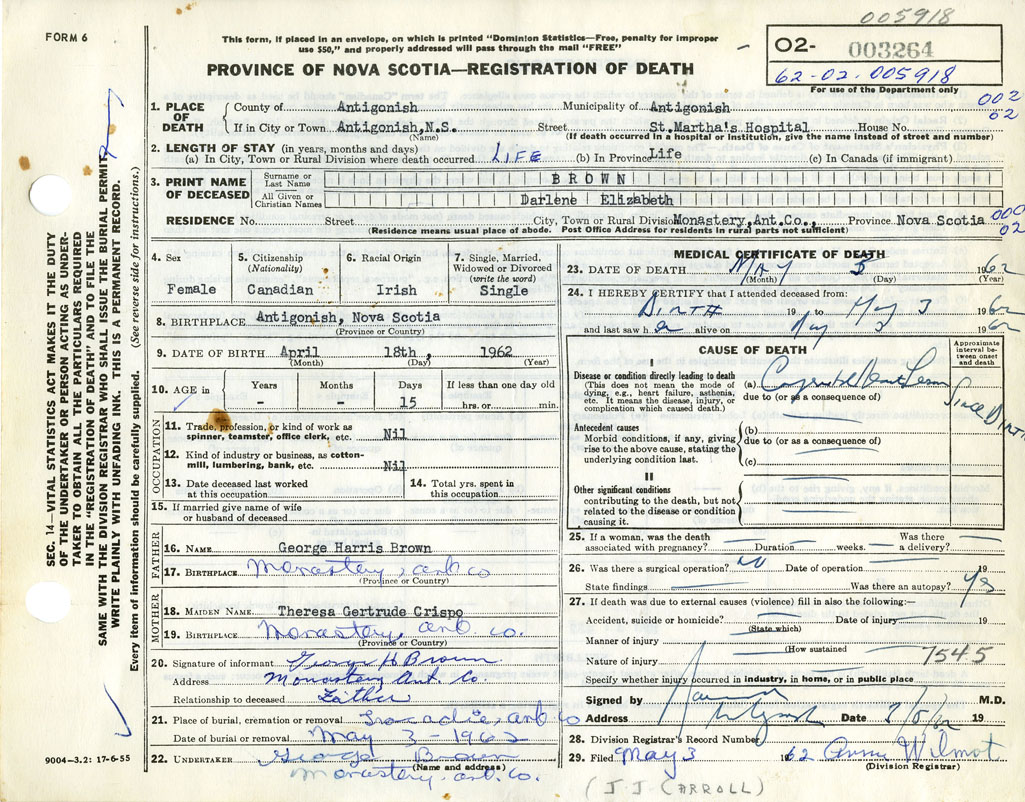 005918
FORM 6
This form, if placed in an envelope, on which is printed "Dominion Statistics—Free, penalty for improper
use $50," and properly addressed will pass through the mail "FREE"
O2- 003264
62-02-005918
For use of the Department only
PROVINCE OF NOVA SCOTIA—REGISTRATION OF DEATH
SEC. 14—VITAL STATISTICS ACT MAKES IT THE DUTY
OF THE UNDERTAKER OR PERSON ACTING AS UNDER-
TAKER TO OBTAIN ALL THE PARTICULARS REQUIRED
IN THE "REGISTRATION OF DEATH" AND TO FILE THE
SAME WITH THE DIVISION REGISTRAR WHO SHALL ISSUE THE BURIAL PERMIT
WRITE PLAINLY WITH UNFADING INK. THIS IS A PERMANENT RECORD.
Every item of information should be carefully supplied. (See reverse side for instructions.)
1. PLACE OF DEATH
County of Antigonish Municipality of Antigonish
002
02
If in City or Town Antigonish, N.S. Street St. Martha's Hospital House No.
(Name) (If death occurred in a hospital or institution, give the name instead of street and number)
2. LENGTH OF STAY (in years, months and days)
(a) In City, Town or Rural Division where death occurred LIFE (b) In Province Life (c) In Canada (if immigrant)
3. PRINT NAME OF DECEASED
Surname or Last Name BROWN
All Given or Christian Names Darlene Elizabeth
RESIDENCE No. Street City, Town or Rural Division Monastery, Ant. Co., Province Nova Scotia
000
02
(Residence means usual place of abode. Post Office Address for residents in rural parts not sufficient)
4. Sex Female
5. Citizenship (Nationality) Canadian
6. Racial Origin Irish
7. Single, Married, Widowed or Divorced (write the word) Single
8. BIRTHPLACE Antigonish, Nova Scotia
(Province or Country)
9. DATE OF BIRTH April 18th, 1962
(Month) (Day) (Year)
10. AGE in Years Months Days If less than one day old
- - 15 hrs. or min.
OCCUPATION
11. Trade, profession, or kind of work as
spinner, teamster, office clerk, etc. Nil
12. Kind of industry or business, as cotton-
mill, lumbering, bank, etc. Nil
13. Date deceased last worked
at this occupation
14. Total yrs. spent in
this occupation
15. If married give name of wife
or husband of deceased
FATHER
16. NAME George Harris Brown
17. BIRTHPLACE Monastery, ant co
(Province or Country)
MOTHER
18. MAIDEN NAME Theresa Gertrude Crispo
19. BIRTHPLACE Monastery, ant. co.
(Province or Country)
20. Signature of informant George H Brown
Address Monastery Ant. Co.
Relationship to deceased Father
21. Place of burial, cremation or removal Tracadie, ant co
Date of burial or removal May 3 - 1962
22. UNDERTAKER George Brown
(Name and address)
Monastery, ant. co.
9004—3.2: 17-6-55
MEDICAL CERTIFICATE OF DEATH
23. DATE OF DEATH MAY 3 1962
(Month) (Day) (Year)
24. I HEREBY CERTIFY that I attended deceased from:
BIRTH 19 to May 3 1962
and last saw h alive on May 2 1962
CAUSE OF DEATH
Approximate interval between onset and death
I
Disease or condition directly leading to death
(This does not mean the mode of
dying, e.g., heart failure, asthenia,
etc. It means the disease, injury, or
complication which caused death.)
(a) Congenital Heart Lesion
Since Birth
due to (or as a consequence of)
Antecedent causes
Morbid conditions, if any, giving
rise to the above cause, stating the
underlying condition last.
(b)
due to (or as a consequence of)
(c)
II
Other significant conditions
contributing to the death, but not
related to the disease or condition
causing it.
25. If a woman, was the death Was there
associated with pregnancy? Duration weeks. a delivery?
26. Was there a surgical operation? NO Date of operation 19
State findings Was there an autopsy? Yes
27. If death was due to external causes (violence) fill in also the following:—
Accident, suicide or homicide? Date of injury 19
(State which)
Manner of injury
(How sustained
Nature of injury 754.5
Specify whether injury occurred in industry, in home, or in public place
Signed by M.D.
Address Date 3/5/62 19
28. Division Registrar's Record Number
29. Filed May 3 1962 Anna Wilmot
(Division Registrar)
(J.J. CARROLL)